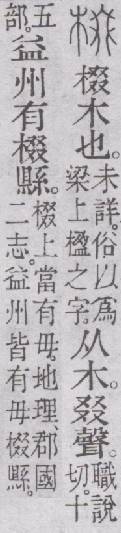 棳 棳木也。未詳。俗以爲梁上楹之字从木。叕聲。職說切。十
五部。益州有棳縣。棳上當有毋。地理、郡國二志。益州皆有毋棳縣。